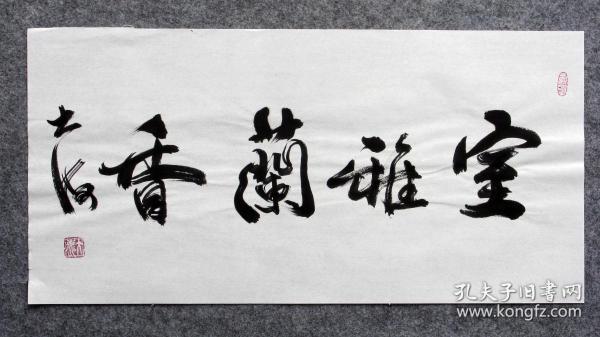 室雅蘭香
大河
孔夫子旧書网
www.kongfz.com